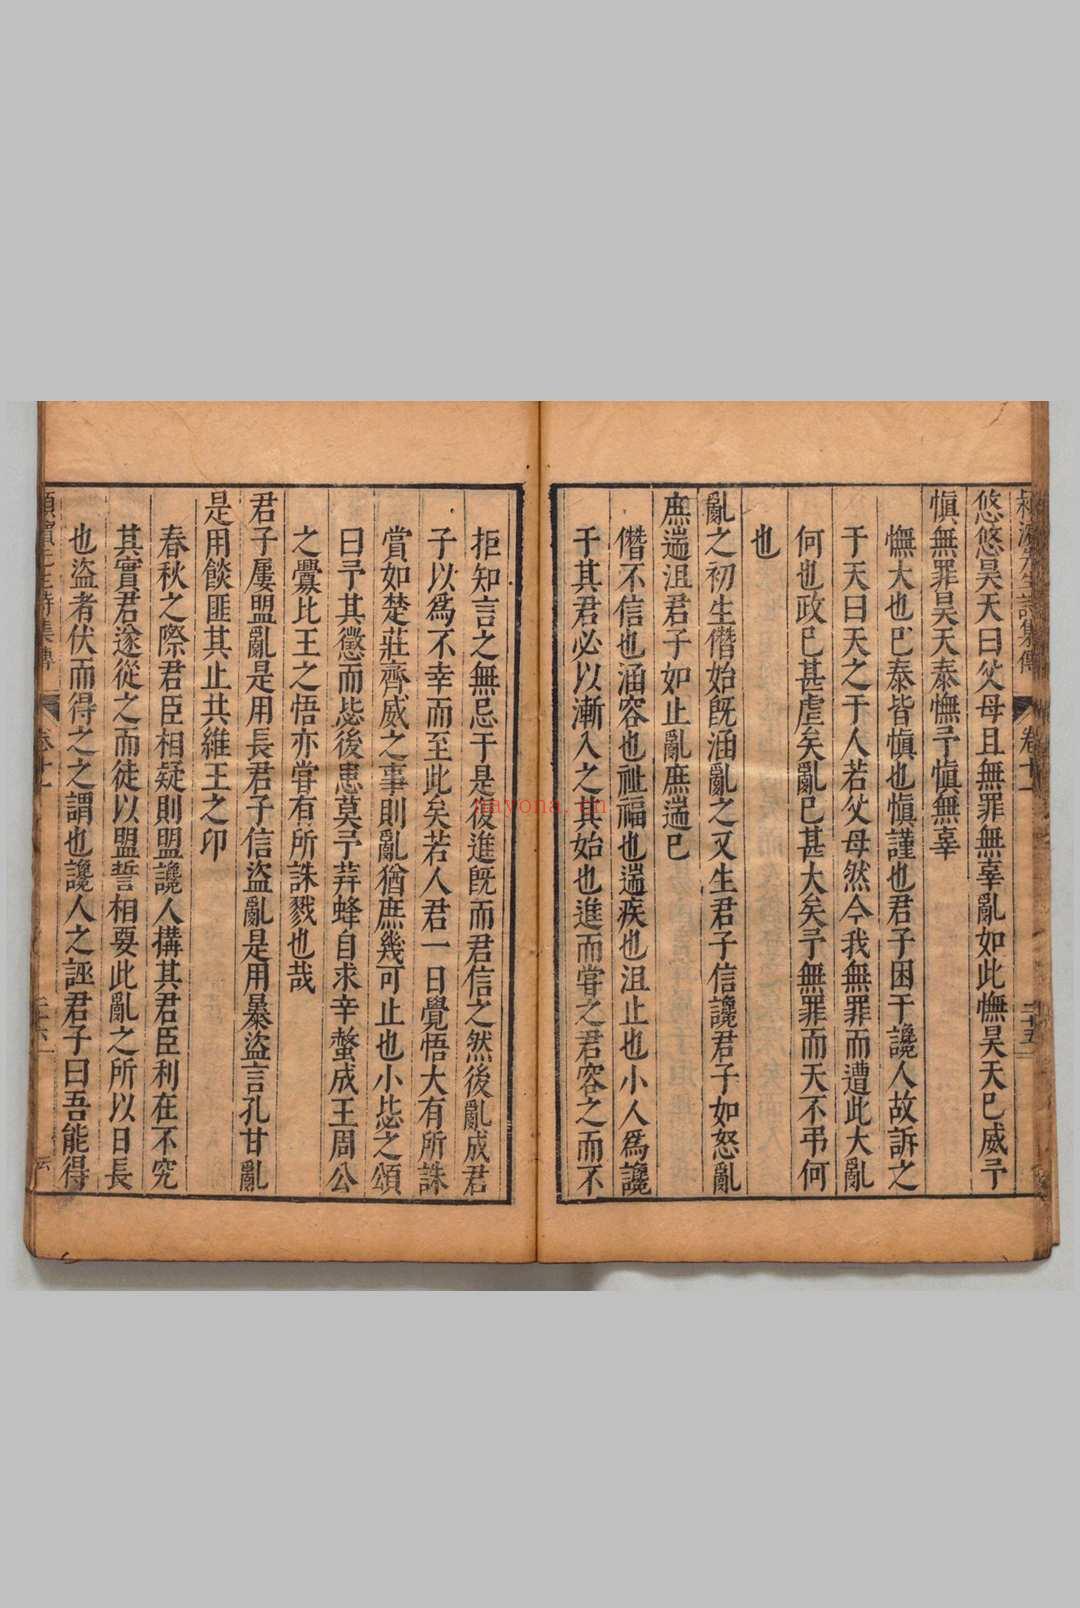 悠悠昊天曰父母且無罪無辜亂如此憮昊天已威予
愼無罪昊天泰憮予愼無辜
憮大也已泰皆愼也愼謹也君子困于讒人故訴之
于天曰天之于人若父母然今我無罪而遭此大亂
何也政已甚虐矣亂已甚大矣予無罪而天不弔何
也
亂之初生僭始旣涵亂之又生君子信讒君子如怒亂
庶遄沮君子如止亂庶遄已
僭不信也涵容也祉福也遄疾也沮止也小人爲讒
于其君必以漸入之其始也進而嘗之君容之而不
拒知言之無忌于是復進旣而君信之然後亂成君
子以爲不幸而至此矣若人君一日覺悟大有所誅
賞如楚莊齊威之事則亂猶庶幾可止也小毖之頌
曰予其懲而毖後患莫予荓蜂自求辛螫成王周公
之釁比王之悟亦嘗有所誅戮也哉
君子屢盟亂是用長君子信盜亂是用暴盜言孔甘亂
是用餤匪其止共維王之卭
春秋之際君臣相疑則盟讒人搆其君臣利在不究
其實君遂從之而徒以盟誓相要此亂之所以日長
也盜者伏而得之之謂也讒人之誣君子曰吾能得
卷十一
二十五
nayona.cn